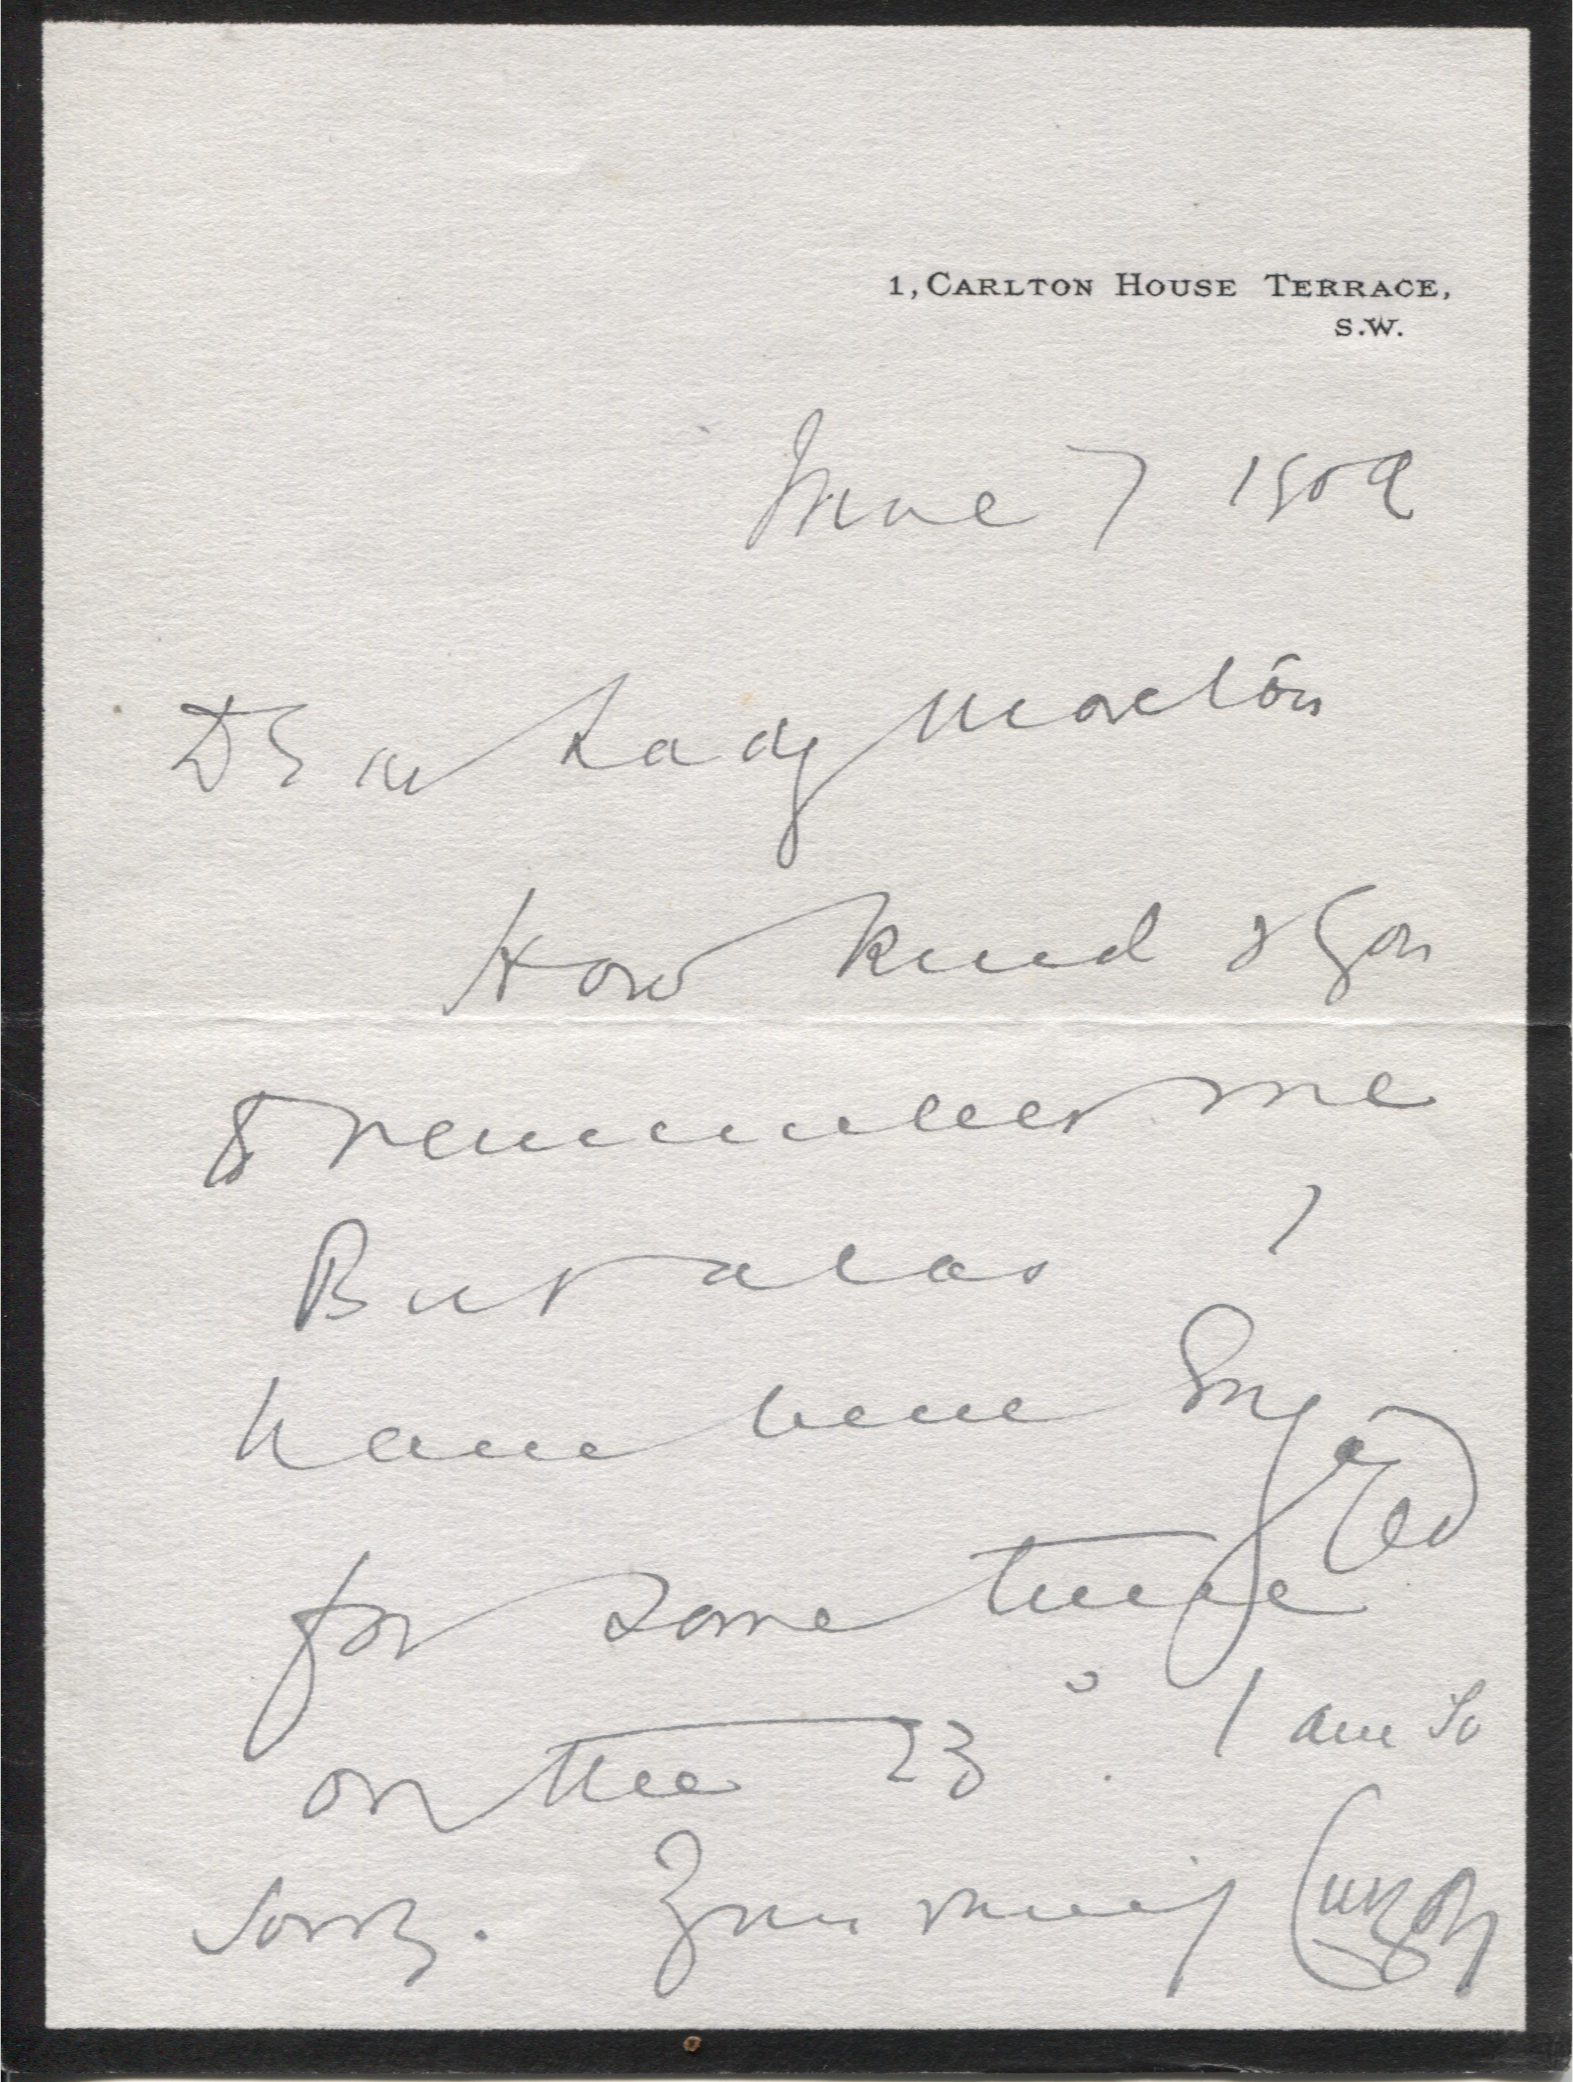 1, CARLTON HOUSE TERRACE,
S.W.
June 7 1909
Dear Lady
How kind of you
to remember me
But alas I
have been engaged
for some time
on the 23°. I am so
sorry. Yours Curzon